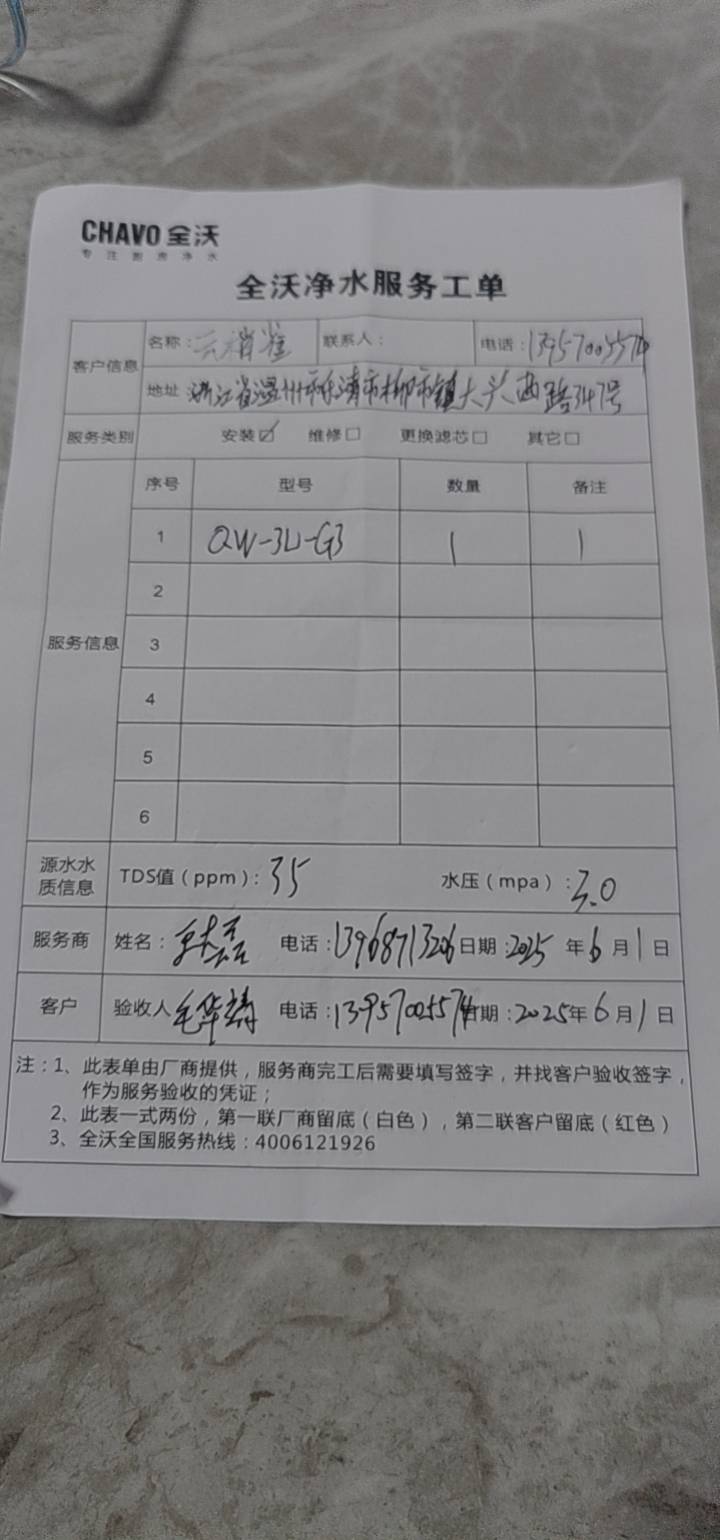 CHAVO 全沃
专注厨房净水
全沃净水服务工单
客户信息 名称： 联系人： 电话：
地址 浙江省温州市乐清市柳市镇大头西路347号
服务类别 安装☑ 维修□ 更换滤芯□ 其它□
服务信息 序号 型号 数量 备注
1 QW-3L-G3 1 1
2
3
4
5
6
源水水质信息 TDS值（ppm）：35 水压（mpa）：3.0
服务商 姓名： 电话：13968713206 日期：2025年6月1日
客户 验收人 电话：13957005574 日期：2025年6月1日
注：1、此表单由厂商提供，服务商完工后需要填写签字，并找客户验收签字，
作为服务验收的凭证；
2、此表一式两份，第一联厂商留底（白色），第二联客户留底（红色）
3、全沃全国服务热线：4006121926